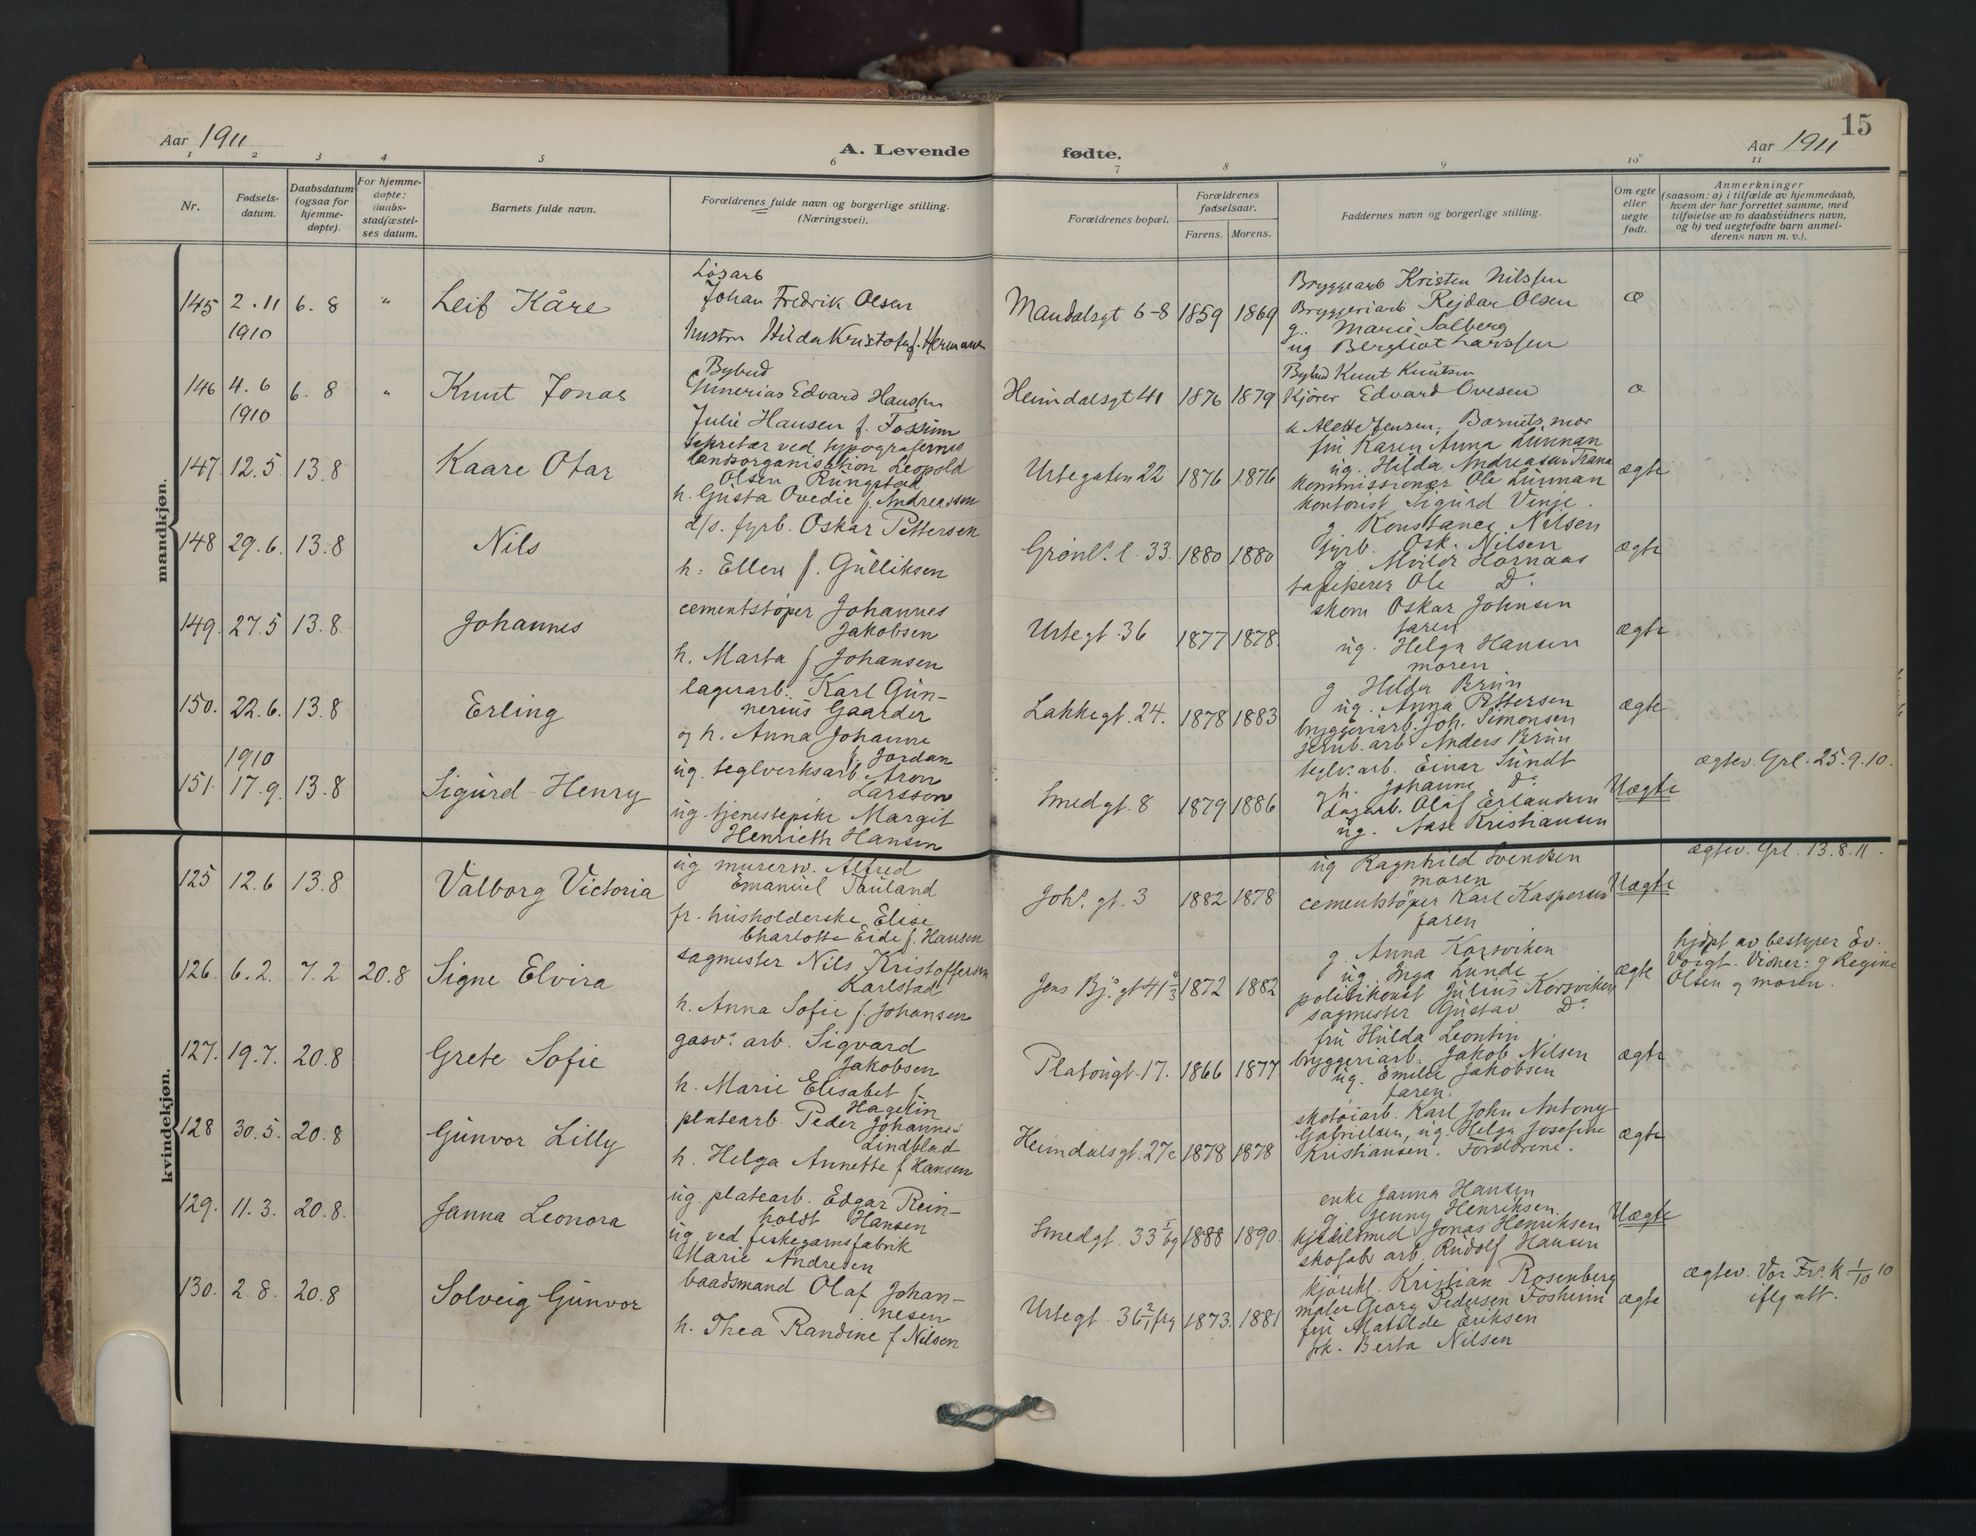 Aar 1911
A. Levende
fødte.
Aar 1911
15
1 2 3 4 5 6 7 8 9 10 11
Nr.
Fødsels-
datum.
Daabsdatum
(ogsaa for
hjemme-
døpte).
For hjemme-
døpte:
daabs-
stadfæstel-
ses datum.
Barnets fulde navn.
Forældrenes fulde navn og borgerlige stilling.
(Næringsvei).
Forældrenes bopæl.
Forældrenes
fødselsaar.
Farens. Morens.
Faddernes navn og borgerlige stilling.
Om egte
eller
uegte
født.
Anmerkninger
(saasom: a) i tilfælde av hjemmedaab,
hvem der har forrettet samme, med
tilføielse av to daabsvidners navn,
og b) ved uegtefødte barn anmel-
derens navn m. v.).
mandkjøn.
145 2.11 6.8 " Leif Kåre
1910
Løsarb
Johan Fredrik Olsen
hustru Hilda Kristofa f. Hermans
Mandalsgt 6-8 1859 1869
Bryggearb Kristen Nilssen
Bryggeriarb Rejdar Olsen
g. Marie Salberg
ug Bergliot Larssen
æ
146 4.6 6.8 " Knut Jonas
1910
Bybud
Edvard Hanssen
Julie Hansen f. Fossum
Heimdalsgt 41 1876 1879
Bybud Knut Knutsen
Kjører Edvard Ovesen
h Alette Jensen, Barnets mor
æ
147. 12.5 13.8 Kaare Otar
sekretær ved typografernes
landsorganisation Leopold
Olsen Rungstad
h. Gusta Ovedie f. Andreassen
Urtegaten 22 1876 1876
fru Karen Anna Lunnan
ug. Hilda Andreasen Trana
kommissionær Ole Lunnan
kontorist Sigurd Vinje.
ægte
148 29.6. 13.8 Nils
d/s. fyrb. Oskar Pettersen
h. Ellen f. Gulliksen
Grønl. l. 33. 1880 1880
g Konstance Nilsen
fyrb. Osk. Nilsen
g. Hornaas
tapetserer Ole Do
ægte
149. 27.5 13.8 Johannes
cementstøper Johannes
Jakobsen
h. Marta f Johansen
Urtegt. 36 1877 1878.
skom Oskar Johnsen
faren
ug. Helga Hansen
moren
ægte
150. 22.6. 13.8 Erling
lagerarb. Karl Gun-
nerius Gaarder
og h. Anna Johanne
f. Jordan
Lakkegt. 24. 1878 1883
g Hilda Brun
ug. Anna Pettersen
bryggeriarb. Joh. Simonsen
jernb. arb. Anders Brun
ægte
1910
151. 17.9. 13.8 Sigurd Henry
ug. teglverksarb. Aron
Larsson
ug. tjenestepike Margit
Henrieth Hansen
Smedgt. 8 1879 1886
teglv.arb. Einar Sundt
h. Johanne Do
dagarb. Olaf Erlandsen
ug. Aase Kristiansen
Uægte
ægtev. Grl. 25.9.10.
kvindekjøn.
125 12.6 13.8 Valborg Victoria
ug murersv. Alfred
Emanuel Tauland
fr. husholderske Elise
Charlotte Eide f. Hansen
Johs. gt. 3 1882 1878
ug Ragnhild Svendsen
moren
cementstøper Karl Kaspersen
faren
Uægte
ægtev. Grl. 13.8.11.
126. 6.2. 7.2 20.8 Signe Elvira
sagmester Nils Kristoffersen
Karlstad
h. Anna Sofie f. Johansen
Jens Bj. gt 41 1872 1882
g. Anna Korsviken
ug. Inga Lunde
politikonst Julius Korsviken
sagmester Gustav Do
ægte
hjdpt av bestyrer Ev.
Voigt. Vidner: g Regine
Olsen og moren.
127. 19.7. 20.8 Grete Sofie
gasv. arb. Sigvard
Jakobsen
h. Marie Elisabet f.
Hagelin
Platougt. 17. 1866 1877
fru Hulda Leontin
bryggeriarb. Jakob Nilsen
ug. Emilie Jakobsen
faren.
ægte
128 30.5. 20.8 Gunvor Lilly
platearb. Peder Johannes
Lindblad
h. Helga Annette f Hansen
Heimdalsgt. 27c 1878 1878
skotøiarb. Karl John Antony
Gabrielsen, ug. Helga Josefine
Kristiansen. Forældrene.
ægte
129. 11.3. 20.8. Janna Leonora
ug. platearb. Edgar Rein-
holdt Hansen
ug. ved fiskegarnsfabrik
Marie Andresen
Smedgt. 33 I bg 1888 1890
enke Janna Hansen
g Jenny Henriksen.
kjedelsmed Jonas Henriksen
skofab arb. Rudolf Hansen
Uægte
130. 2.8. 20.8 Solveig Gunvor
baadsmand Olaf Johan-
nesen
h. Thea Randine f Nilsen
Urtegt. 36 2/1 frg 1873. 1881
kjørekl. Kristian Rosenberg
maler Georg Pedersen Fosheim
fru Matilde Eriksen
frk. Berta Nilsen
ægte
ægtev. Vor Fr. K 1/10 10
iflg att.